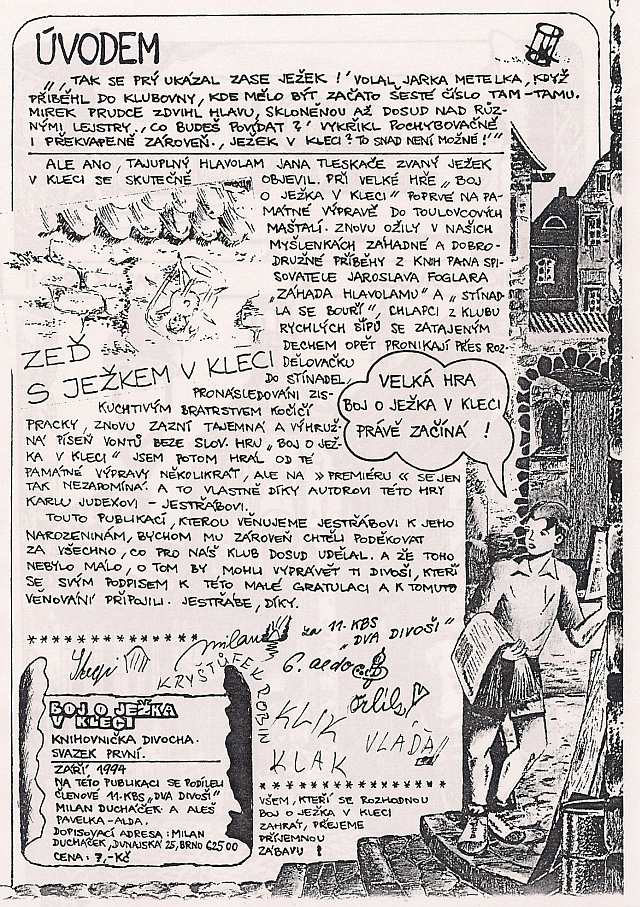 ÚVODEM
„TAK SE PRÝ UKÁZAL ZASE JEŽEK!" VOLAL JARKA METELKA, KDYŽ
PŘIBĚHL DO KLUBOVNY, KDE MĚLO BÝT ZAČATO ŠESTÉ ČÍSLO TAM-TAMU.
MIREK PRUDCE ZDVIHL HLAVU, SKLONĚNOU AŽ DOSUD NAD RŮZ-
NÝMI LEJSTRY. „CO BUDEŠ POVÍDAT?" VYKŘIKL POCHYBOVAČNĚ
I PŘEKVAPENĚ ZÁROVEŇ. „JEŽEK V KLECI? TO SNAD NENÍ MOŽNÉ!"
ALE ANO, TAJUPLNÝ HLAVOLAM JANA TLESKAČE ZVANÝ JEŽEK
V KLECI SE SKUTEČNĚ
OBJEVIL. PŘI VELKÉ HŘE „BOJ
O JEŽKA V KLECI" POPRVÉ NA PA-
MÁTNÉ VÝPRAVĚ DO TOULOVCOVÝCH
MAŠTALÍ. ZNOVU OŽILY V NAŠICH
MYŠLENKÁCH ZÁHADNÉ A DOBRO-
DRUŽNÉ PŘÍBĚHY Z KNIH PANA SPI-
SOVATELE JAROSLAVA FOGLARA
„ZÁHADA HLAVOLAMU" A „STÍNAD-
LA SE BOUŘÍ", CHLAPCI Z KLUBU
RYCHLÝCH ŠÍPŮ SE ZATAJENÝM
DECHEM OPĚT PRONIKAJÍ PŘES ROZ-
DĚLOVAČKU
DO STÍNADEL,
PRONÁSLEDOVÁNI ZIS-
KUCHTIVÝM BRATRSTVEM KOČIČÍ
PRACKY, ZNOVU ZAZNÍ TAJEMNÁ A VÝHRUŽ-
NÁ PÍSEŇ VONTŮ BEZE SLOV. HRU „BOJ O JEŽ-
KA V KLECI" JSEM POTOM HRÁL OD TÉ
PAMÁTNÉ VÝPRAVY NĚKOLIKRÁT, ALE NA »PREMIÉRU« SE JEN
TAK NEZAPOMÍNÁ. A TO VLASTNĚ DÍKY AUTOROVI TÉTO HRY
KARLU JUDEXOVI - JESTŘÁBOVI.
TOUTO PUBLIKACÍ, KTEROU VĚNUJEME JESTŘÁBOVI K JEHO
NAROZENINÁM, BYCHOM MU ZÁROVEŇ CHTĚLI PODĚKOVAT
ZA VŠECHNO, CO PRO NÁŠ KLUB DOSUD UDĚLAL. A ŽE TOHO
NEBYLO MÁLO, O TOM BY MOHLI VYPRÁVĚT TI DIVOŠI, KTEŘÍ
SE SVÝM PODPISEM K TÉTO MALÉ GRATULACI A K TOMUTO
VĚNOVÁNÍ PŘIPOJILI. JESTŘÁBE, DÍKY.
ZEĎ
S JEŽKEM V KLECI
VELKÁ HRA
BOJ O JEŽKA V KLECI
PRÁVĚ ZAČÍNÁ!
milan
za 11. KBS
„DVA DIVOŠI"
KRYŠTŮFEK
ROBIN
KLIK
KLAK
VLÁĎA
BOJ O JEŽKA
V KLECI
KNIHOVNIČKA DIVOCHA.
SVAZEK PRVNÍ.
ZÁŘÍ 1994
NA TÉTO PUBLIKACI SE PODÍLELI
ČLENOVÉ 11.KBS „DVA DIVOŠI"
MILAN DUCHÁČEK A ALEŠ
PAVELKA-ALDA.
DOPISOVACÍ ADRESA: MILAN
DUCHÁČEK, DUNAJSKÁ 25, BRNO 62500
CENA: 7,-KČ
VŠEM, KTEŘÍ SE ROZHODNOU
BOJ O JEŽKA V KLECI
ZAHRÁT, PŘEJEME
PŘÍJEMNOU
ZÁBAVU!